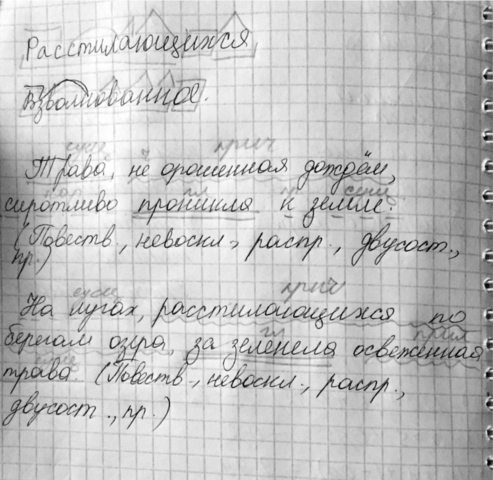 Расстилающихся
Взволнованное.
сущ прич
Трава, не орошенная дождём,
гл пр сущ
сиротливо проникля к земле.
(Повеств., невоскл., распр., двусост.,
пр.)
сущ прич
На лугах, расстилающихся по
гл прил
берегам озера, за зеленела освежённая
сущ
трава. (Повеств., невоскл., распр.,
двусост., пр.)